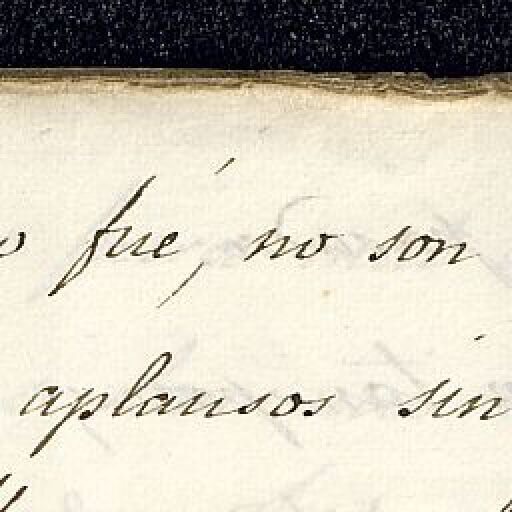 o fué, no son
aplausos sin